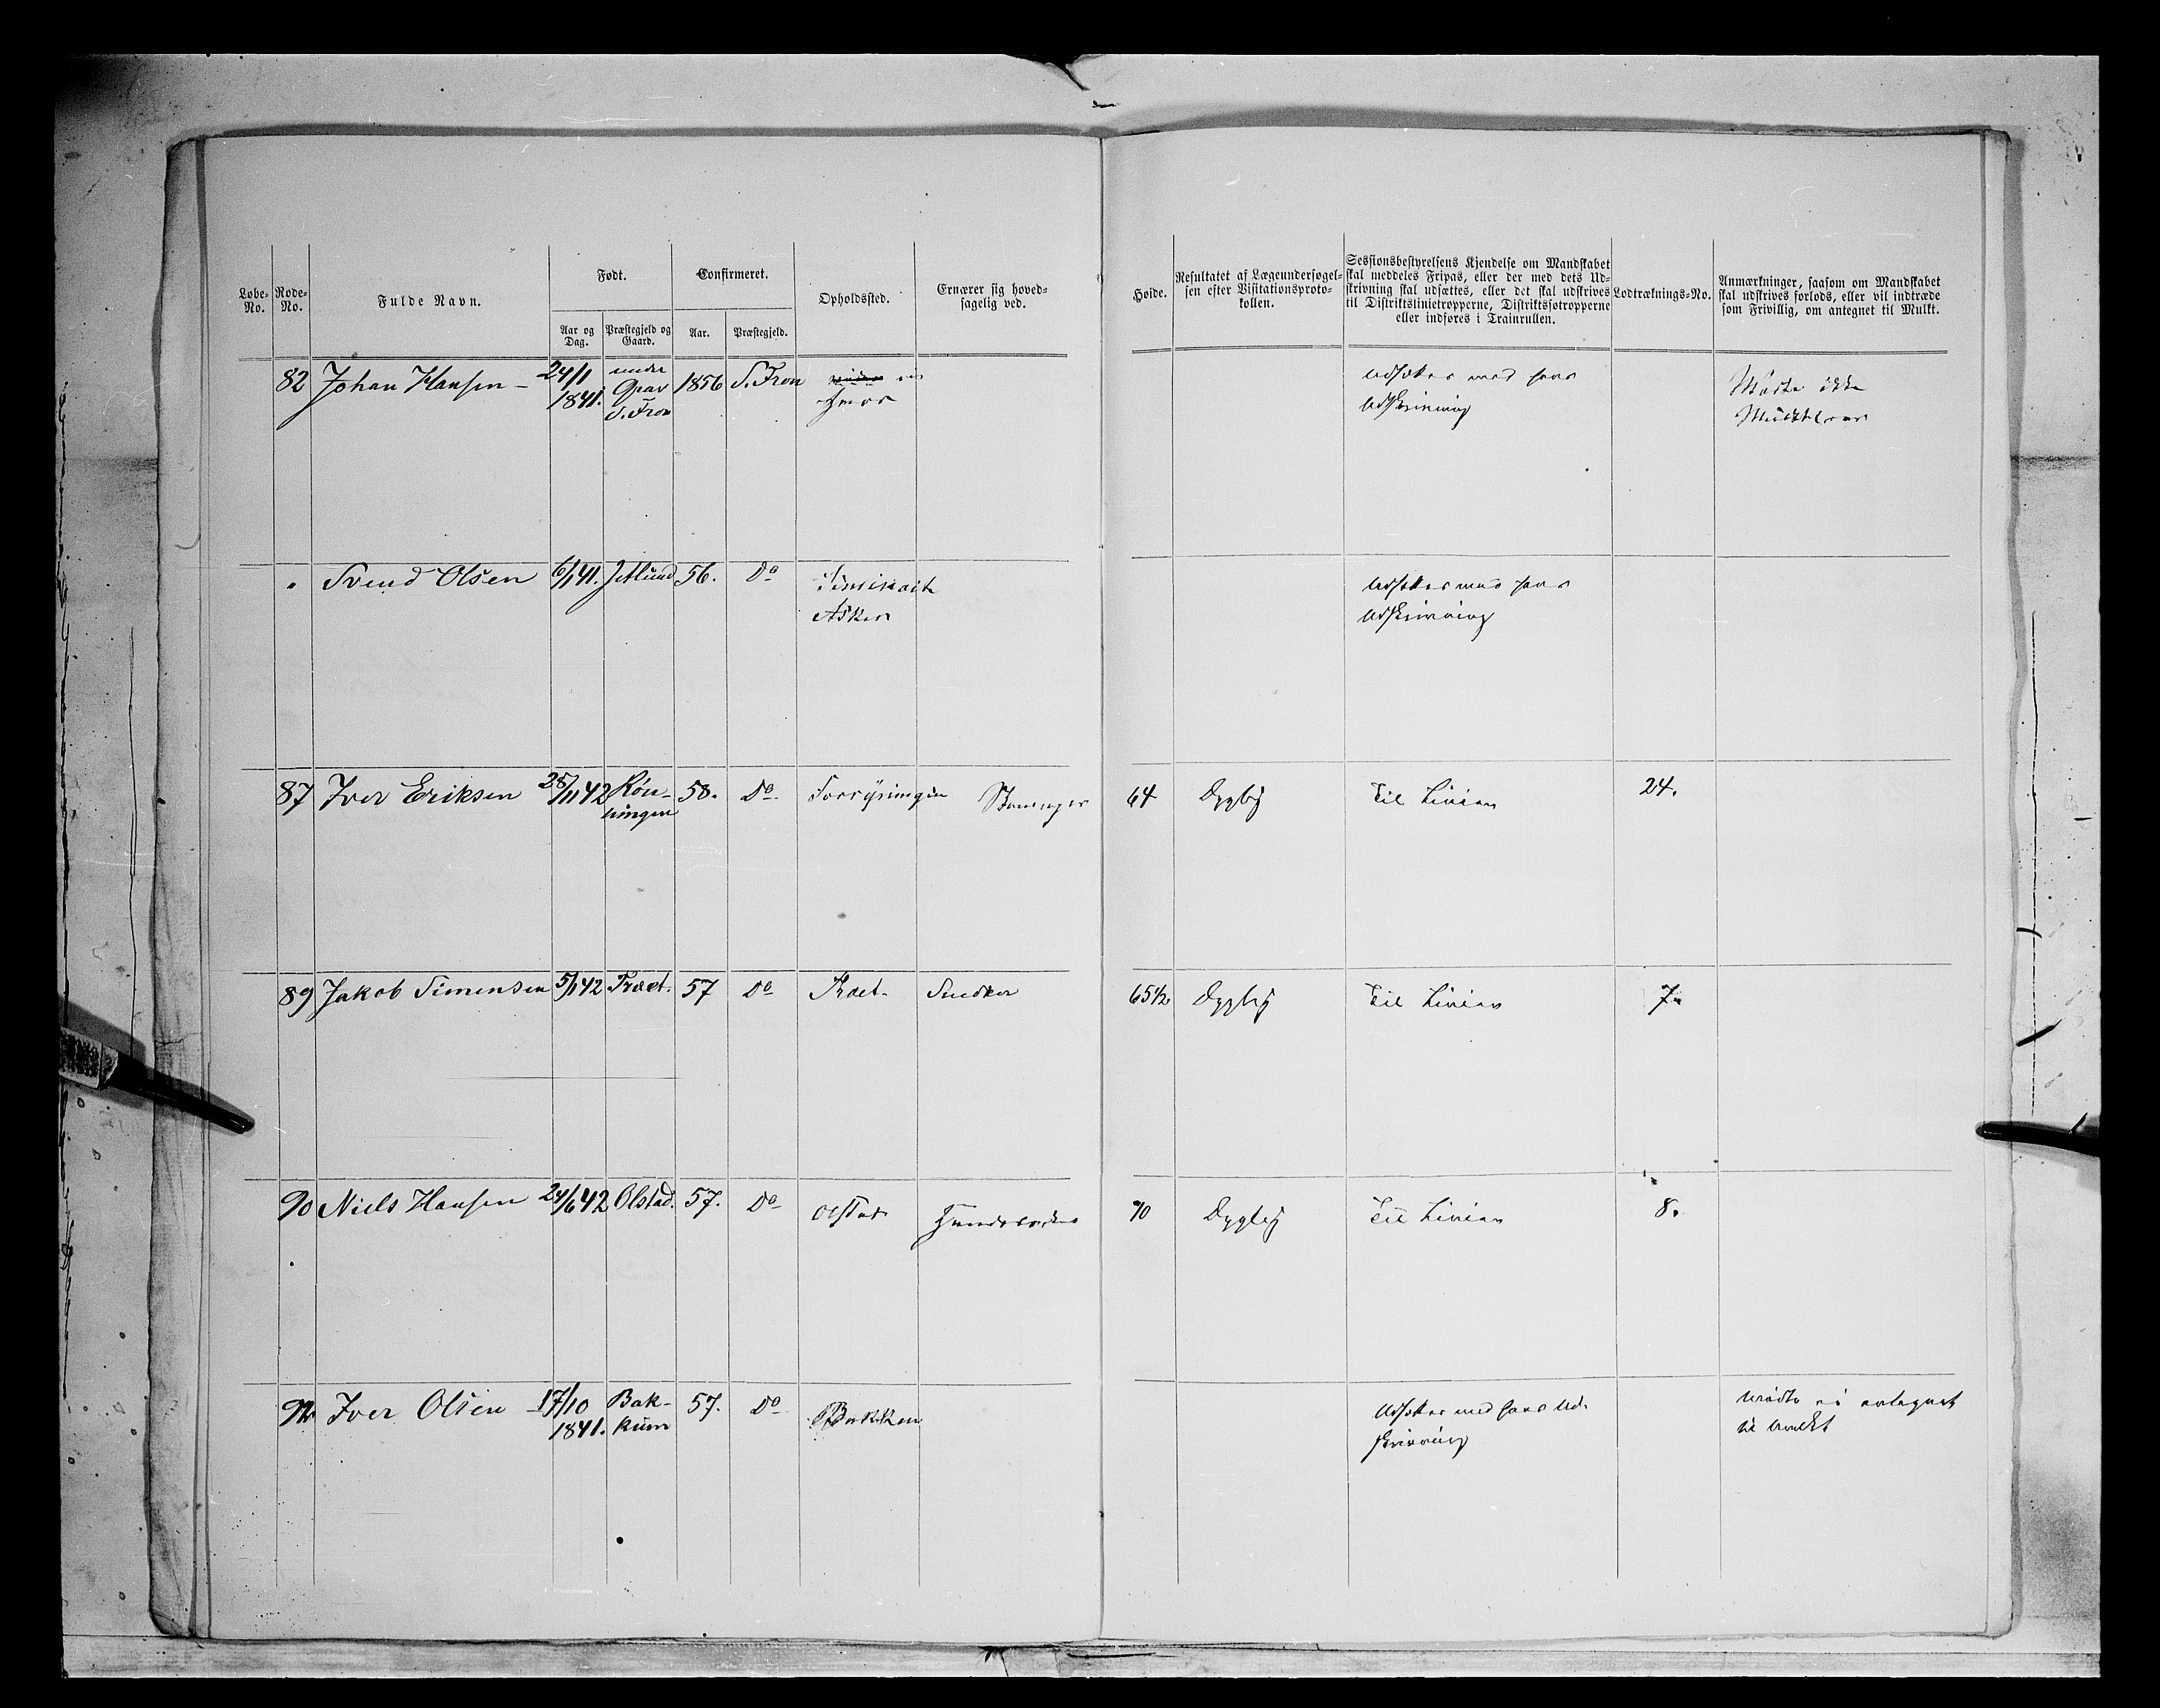 Løbe-No.
Rode-No.
Fulde Navn.
Født.
Aar og Dag.
Præstegjeld og Gaard.
Confirmeret.
Aar.
Præstegjeld.
Opholdssted.
Ernærer sig hoved-
sagelig ved.
Høide.
Resultatet af Lægeundersøgel-
sen efter Visitationsproto-
kollen.
Sessionsbestyrelsens Kjendelse om Mandskabet
skal meddeles Fripas, eller der med dets Ud-
skrivning skal udsættes, eller det skal udskrives
til Distriktslinietropperne, Distriktsføtropperne
eller indføres i Trainrullen.
Lodtræknings-No.
Anmærkninger, saasom om Mandskabet
skal udskrives forlods, eller vil indtræde
som Frivillig, om antegnet til Mulkt.
82 Johan Hansen – 24/1 under 1856 S. Fron
1841.
S. Fron
Udsættes med hans
Udskrivning
Mødte ikke
" Svend Olsen 6/1 41. 56. Do
Asker
Udsættes med hans
Udskrivning
87 Iver Eriksen 28/11 42 Røn- 58. Do 64 Dygtig Til Linien 24.
ningen
89 Jakob Simensen 5/1 42 Træet. 57 Do Snedker 65 1/2 Dygtig Til Linien 7.
90 Niels Hansen 24/6 42 Olstad. 57. Do Olstad 70 Dygtig Til Linien 8.
Iver Olsen 17/10 Bak- 57. Do Bakken Udsættes med hans Ud- mødte ei antegnet
1841. kum skrivning til mulkt